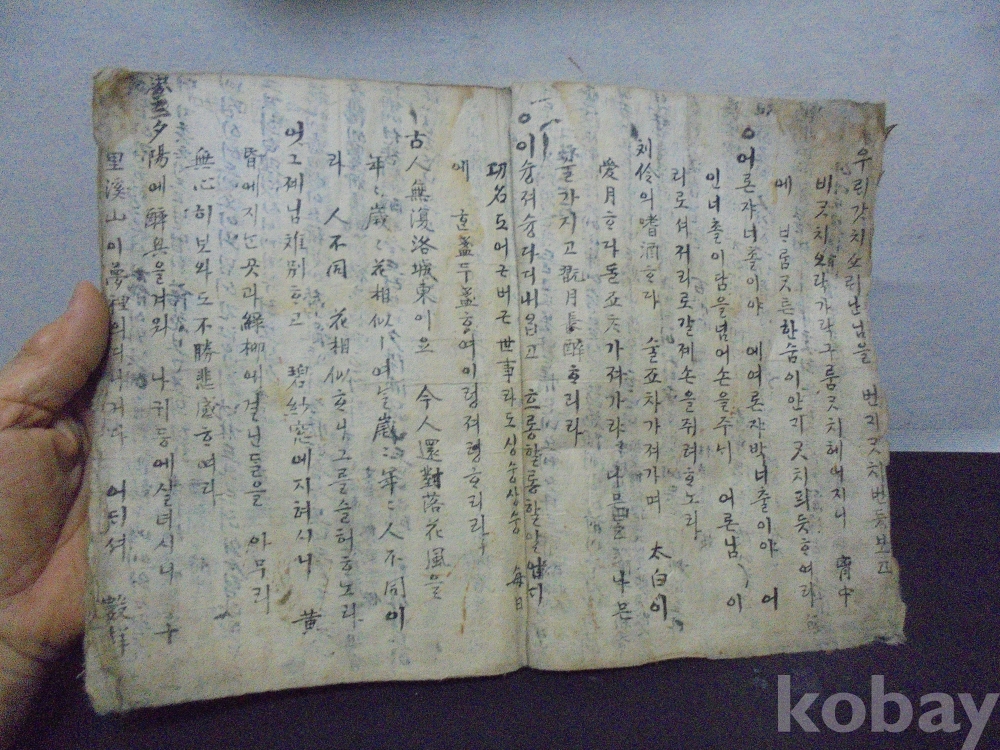 우리갓치소리난님을 번기긋치번듯보고
비긋치오락가락구룸긋치헤여지니 胷中
에 ᄇᆞ룸ᄀᆞᆺ튼한숨이안기긋치픠듯ᄒᆞ여라
어론쟈너츌이야 에여론쟈박너츌이야 어
인너츌이담을넘어손을주니 어론님이 이
리로셔져리로갈제손을쥐려ᄒᆞ노라
劉伶의嗜酒ᄒᆞ다 술죠차가져가며 太白이
愛月ᄒᆞ다 가져가랴 나믄
가지고翫月長醉ᄒᆞ리라
이슝져슝다 흐롱할롱
功名도어근버근世事라도싱슝상슝 每日
에 ᄒᆞᆫ盞두盞ᄒᆞ여이렁져렁ᄒᆞ리라
古人無復洛城東이요 今人還對落花風을
年〻歲〻花相似ㅣ여늘歲〻年〻人不同이
라 人不同 花相似ᄒᆞ니그를슬허ᄒᆞ노라
엇그제님離別ᄒᆞ고 碧紗窓에지혀시니 黃
昏에지는곳과綠柳에걸닌ᄃᆞᆯ을 아무리
無心히보와도不勝悲感ᄒᆞ여라
夕陽에醉興을겨워 나귀등에실녀시니 十
里溪山이夢裡의지나거다 어듸셔 數聲
kobay